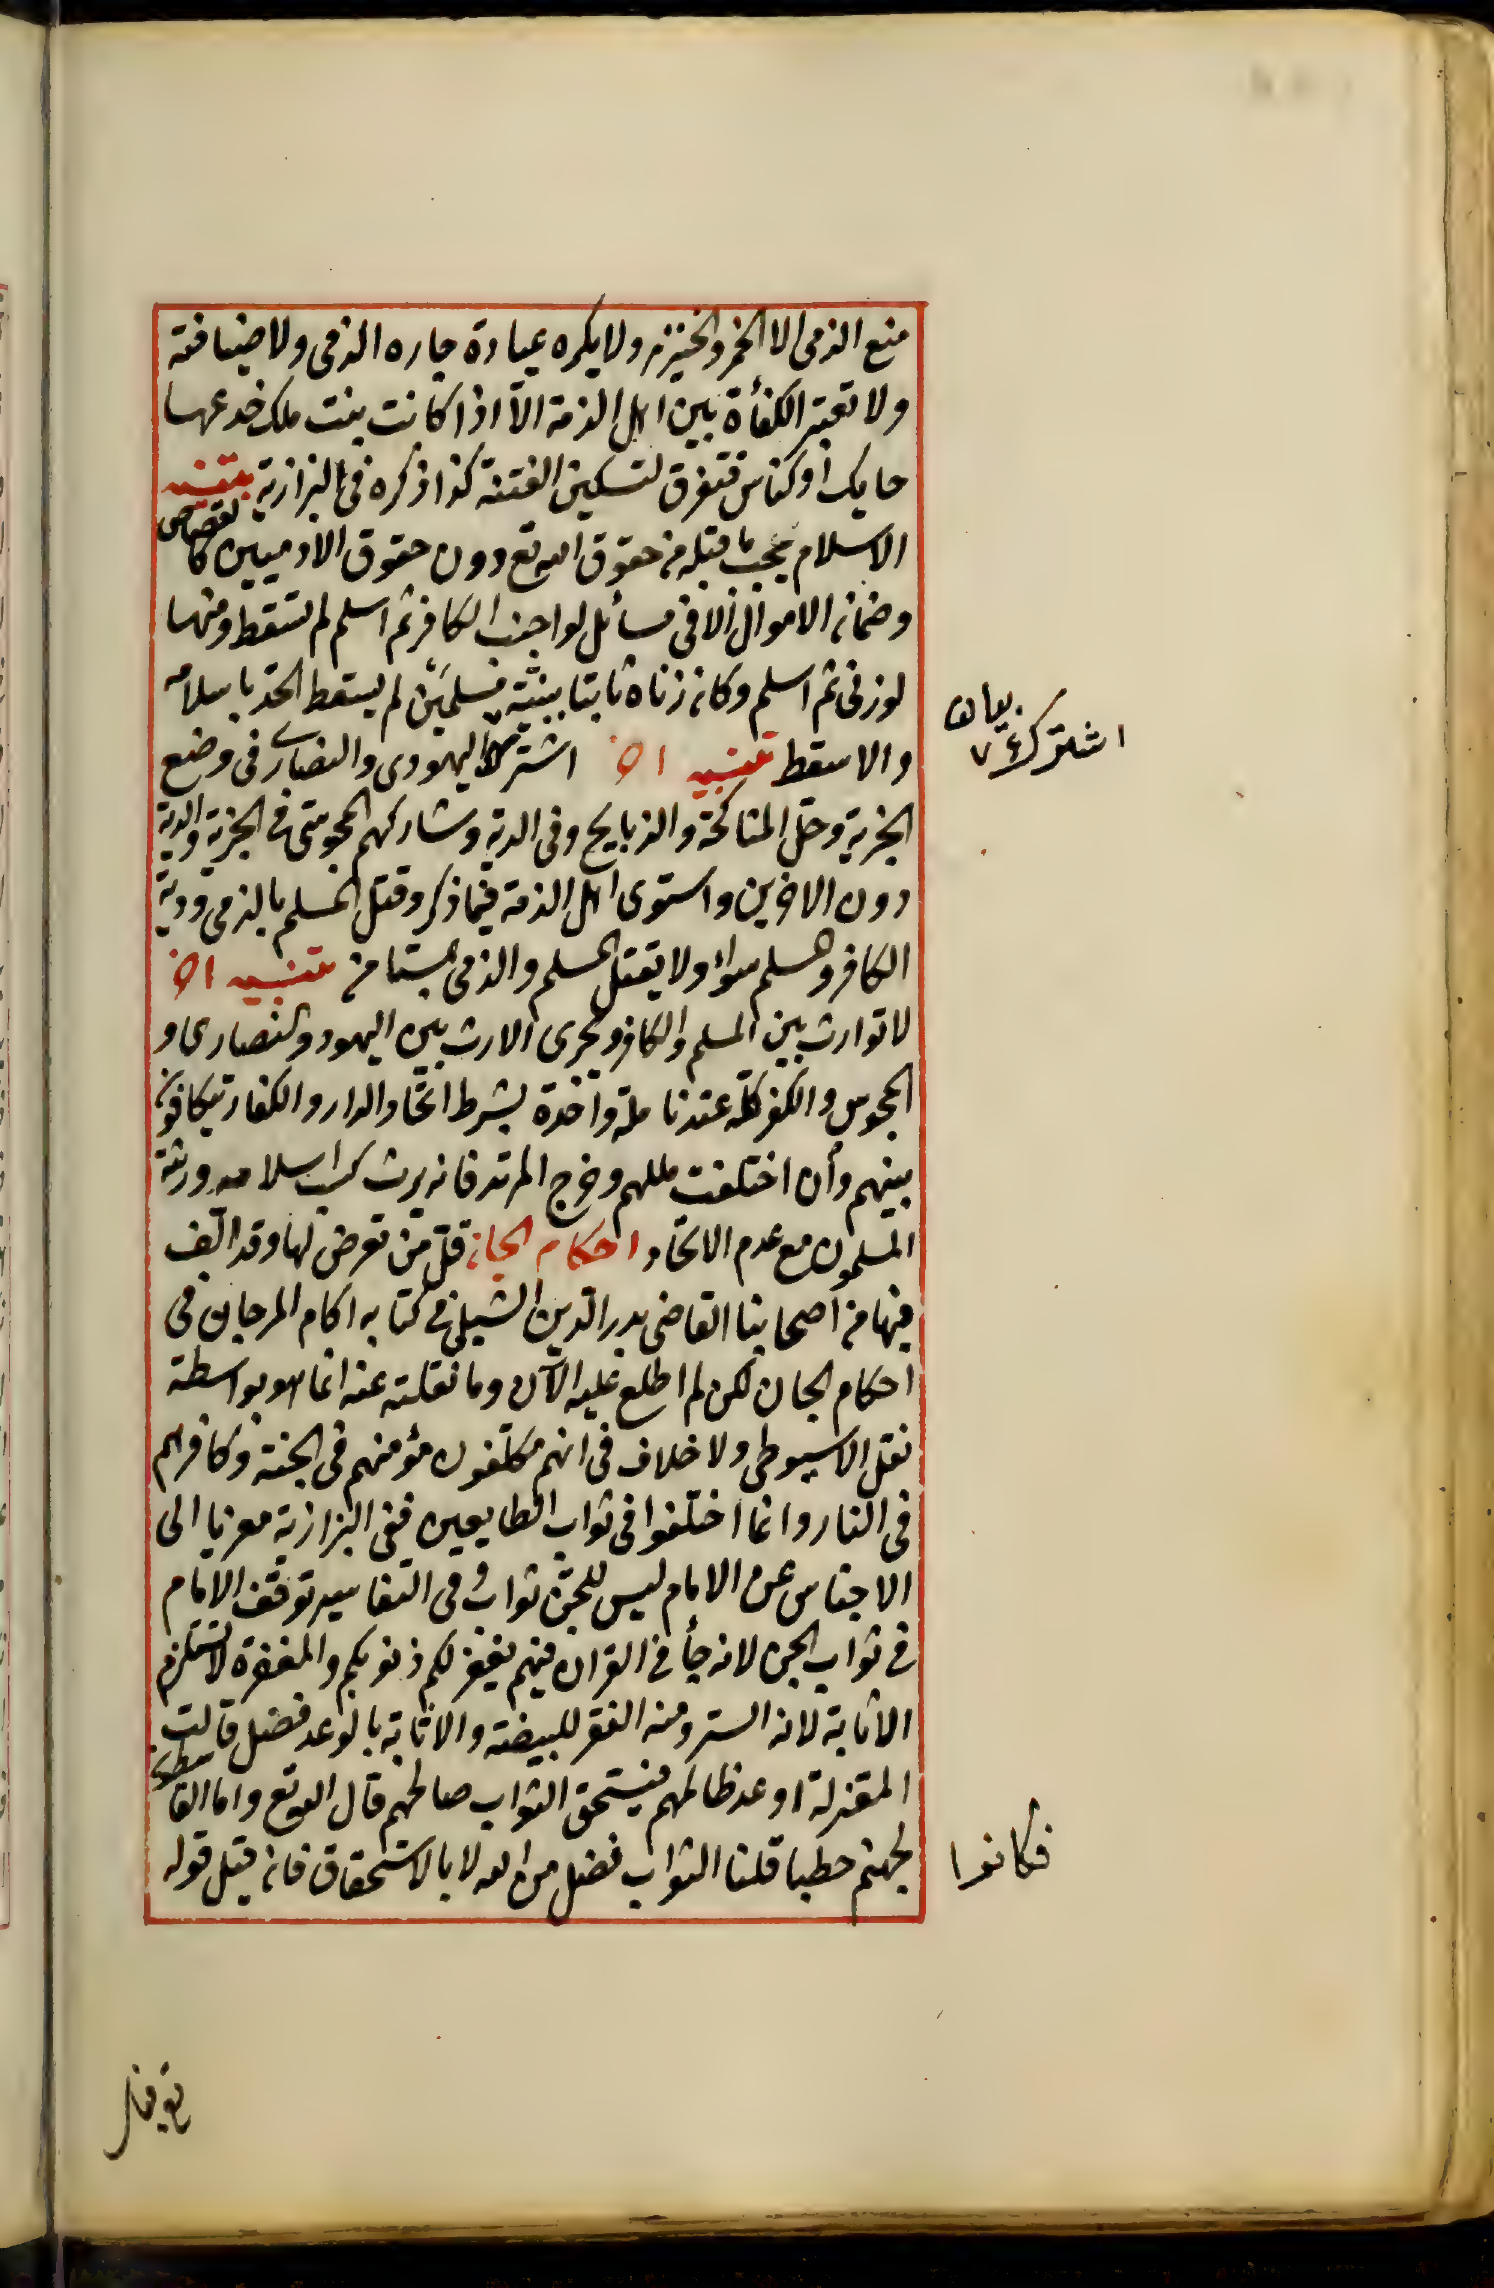 منع الذمي الا الخمر والخنزير ولا يكره عيادة جاره الذمي ولا ضيافته
ولا تعتبر الكفأة بين اهل الذمة الا اذا كانت بنت ملك خدعها
حايك أو كناس فتفرق لتسكين الفتنة كذا ذكره في البزازية تنبيه
الاسلام يجب ما قبله من حقوق الله تع دون حقوق الادميين كالقصاص
وضمان الاموال الا في مسائل لو اجنب الكافر ثم اسلم لم تسقط ومنها
لو زنى ثم اسلم وكان زناه ثابتا ببينة مسلمين لم يسقط الحد باسلامه
والا سقط تنبيه اخر اشترك اليهودي والنصارى في وضع
الجزية وحل المناكحة والذبايح وفي الدية وشاركهم المجوسي في الجزية والدية
دون الاخرين واستوى اهل الذمة فيما ذكر وقتل المسلم بالذمي ودية
الكافر والمسلم سواء ولا يقتل المسلم والذمي بمستامن تنبيه اخر
لا توارث بين المسلم والكافر ويجرى الارث بين اليهود والنصارى و
المجوس والكفر كله عندنا ملة واحدة بشرط اتحاد الدار والكفار يتكافون
بينهم وأن اختلفت مللهم وخرج المرتد فانه يرث كسب اسلامه ورثته
المسلمون مع عدم الاتحاد احكام الجان قل من تعرض لها وقد الف
فيها من أصحابنا القاضي بدر الدين الشبلي في كتابه اكام المرجان في
احكام الجان لكن لم اطلع عليه الآن وما نقلته عنه انما هو بواسطة
نقل الاسيوطي ولا خلاف في انهم مكلفون مؤمنهم في الجنة وكافرهم
في النار وانما اختلفوا في ثواب الطايعين ففي البزازية معزيا الى
الاجناس عن الامام ليس للجن ثواب وفي التفاسير توقف الامام
في ثواب الجن لانه جأ في القران فيهم يغفر لكم ذنوبكم والمغفرة لا تستلزم
الاثابة لانه الستر ومنه الغفر للبيضة والاثابة بالوعد فضل قالت
المعتزلة اوعد ظالمهم فيستحق الثواب صالحهم قال الله تع واما القاسطون
لجهنم حطبا قلنا الثواب فضل من الله لا بالاستحقاق فان قيل قوله
بيان
اشترك
فكانوا